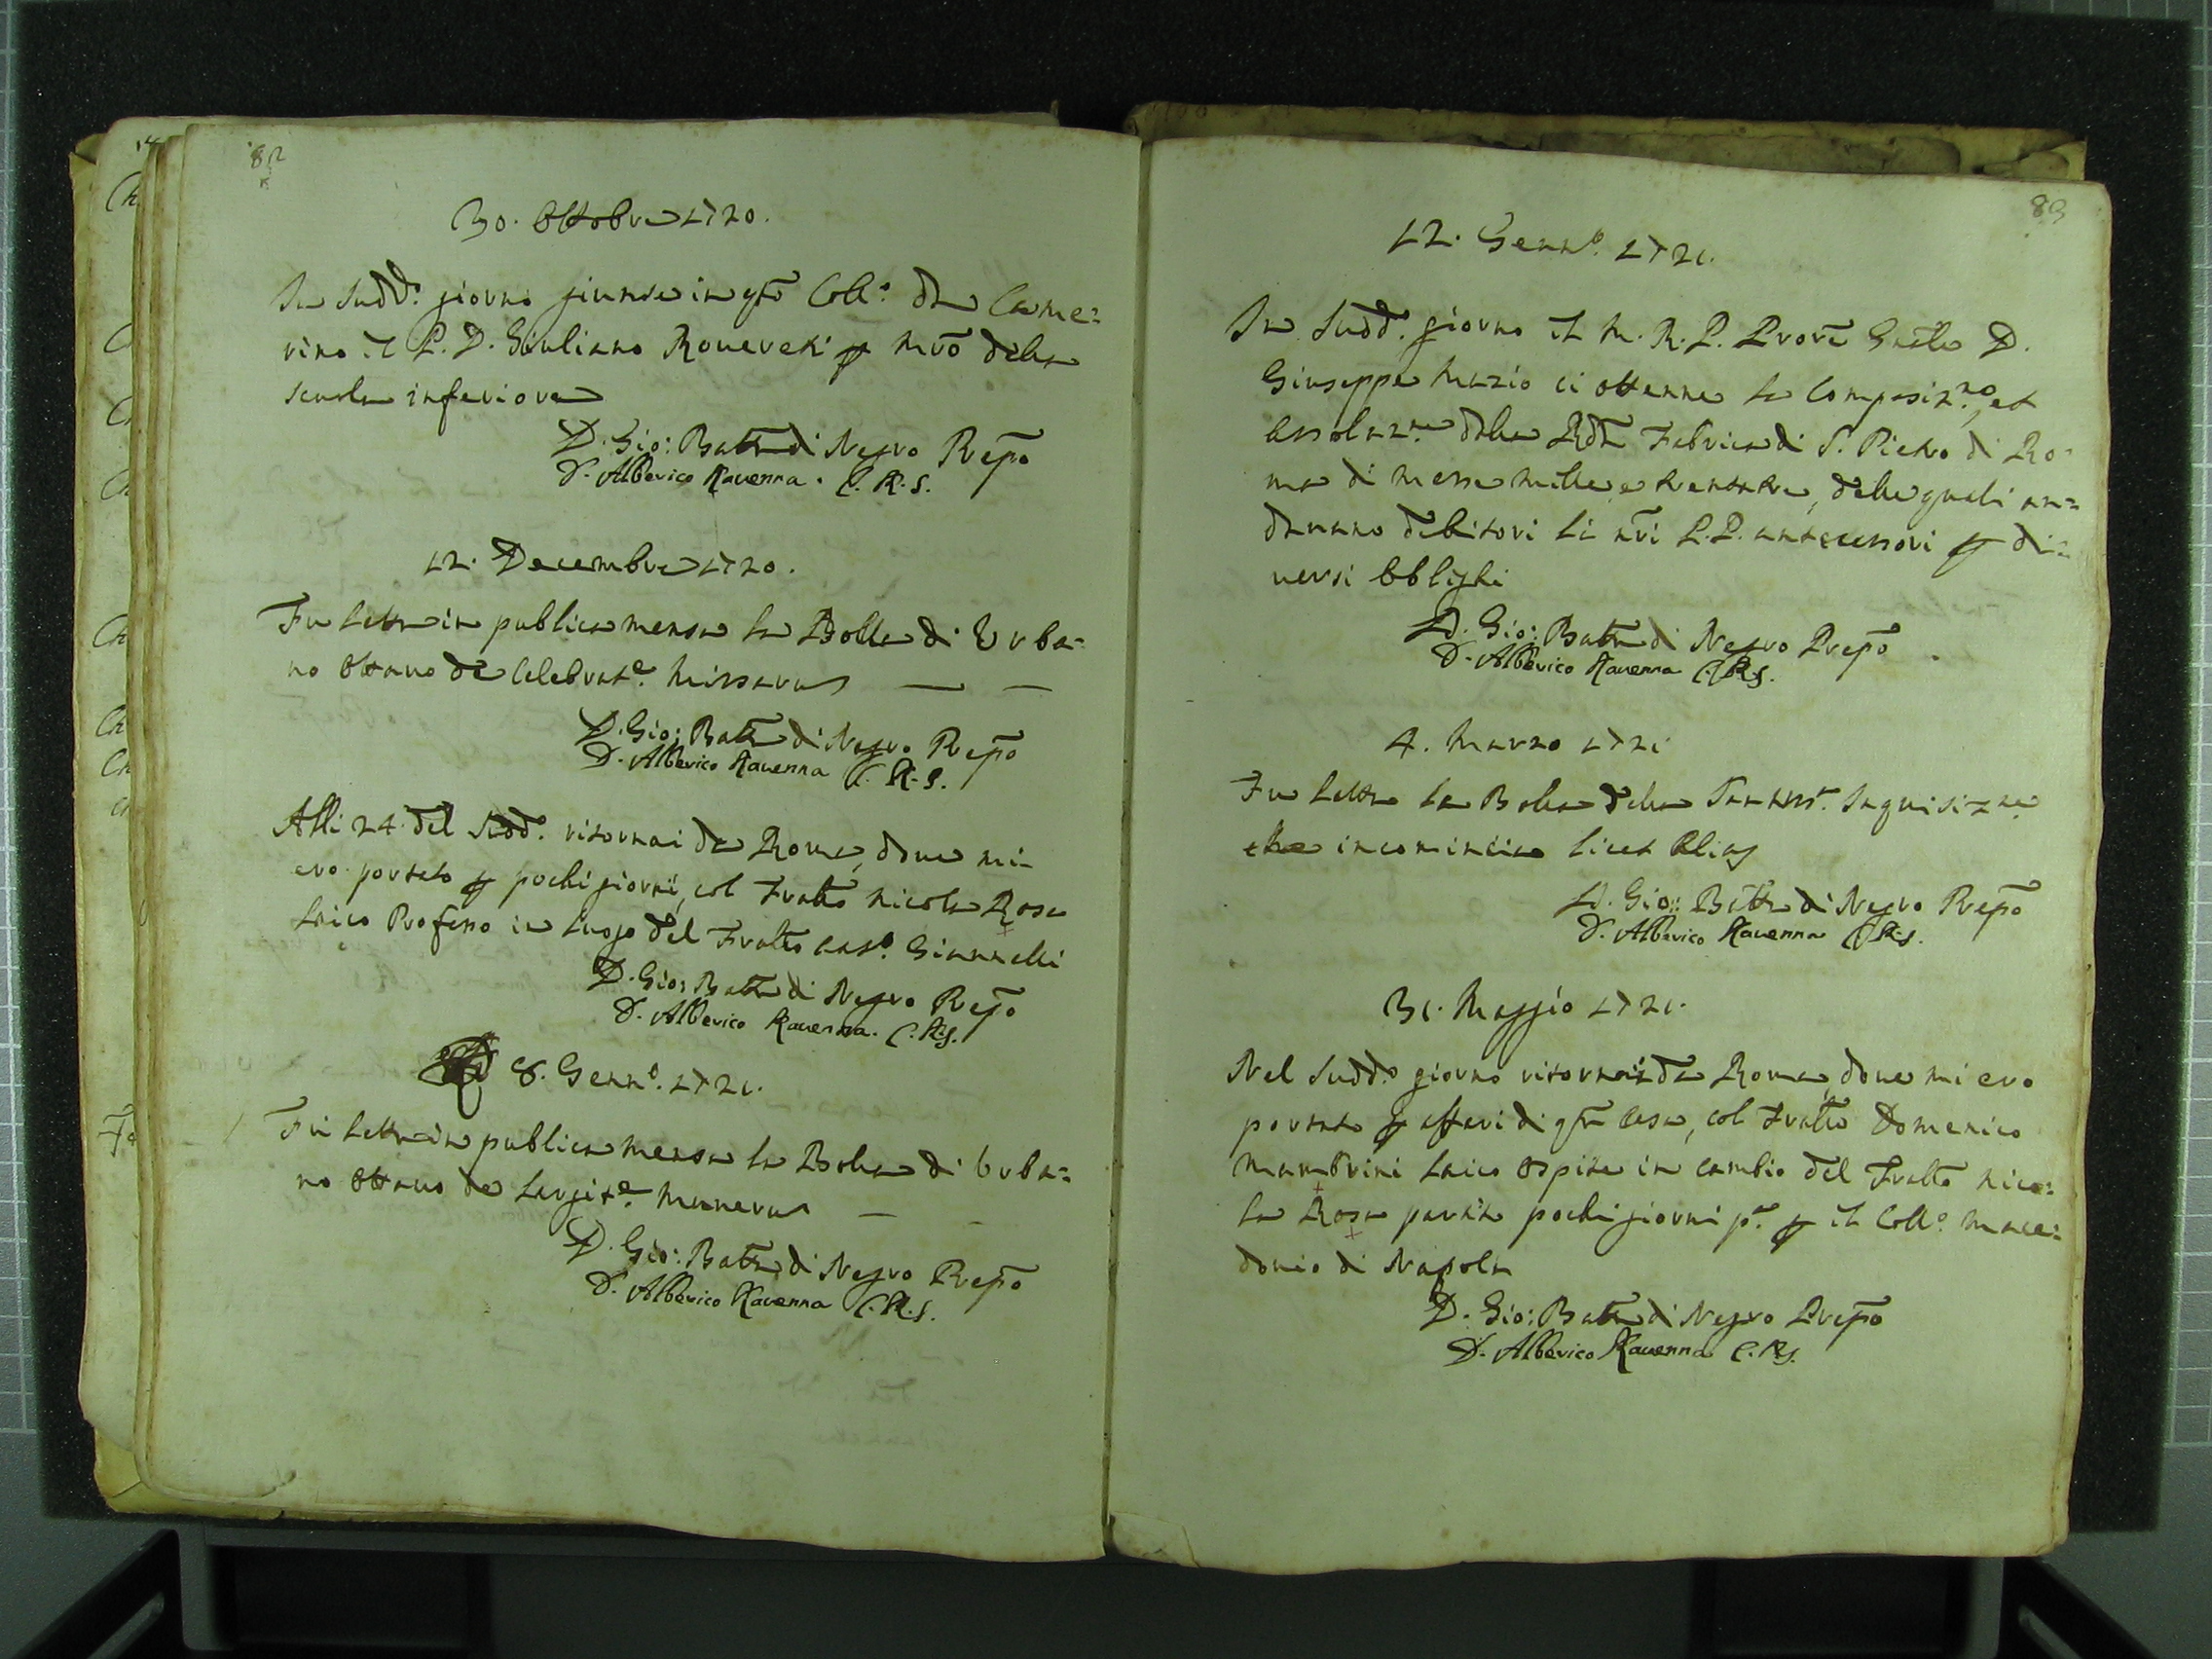 82
30. Ottobre 1720.
In sudd.º giorno giunse in qto Coll.º da Came=
rino il P. D. Giuliano Rovereti p mro della
scuola inferiore
D. Gio: Batta di Negro Repõ
D. Alberico Ravenna. C. R. S.
12. Decembre 1720.
Fu letta in publica mensa la Bolla di Urba=
no Ottavo de Celebrat.e Missarum — —
D. Gio: Batta di Negro Prepõ
D. Alberico Ravenna C. R. S.
Alli 24 del Sudd.º ritornai da Roma, dove mi
ero portato p pochi giorni, col Fratto Nicola Rosa
laico Professo in luogo del Fratto Giannelli
D. Gio: Batta di Negro Prepõ
D. Alberico Ravenna. C. R. S.
8. Genn.º 1721.
Fu letta in publica mensa la Bolla di Urba=
no Ottavo de largit.e Munerum —
D. Gio: Batta di Negro Prepõ
D. Alberico Ravenna C. R. S.
83
12. Genn.º 1721.
In Sudd.º giorno il M. R. P. Prore Gnãle D.
Giuseppe Mazio ci ottenne la Composiz.ne, et
assoluz.ne dalla Rda Fabrica di S. Pietro di Ro=
ma di messe mille e trentatre, delle quali an=
davano debitori li nri P.P. antecessori p di=
versi Obblighi
D. Gio: Batta di Negro Prepõ
D. Alberico Ravenna C. R. S.
4. Marzo 1721
Fu letta la Bolla della Inquisiz.ne
che incomincia licet Alias
D. Gio: Batta di Negro Prepõ
D. Alberico Ravenna C. R. S.
31. Maggio 1721.
Nel Sudd.º giorno ritornai da Roma, dove mi ero
portato p affari di qta Casa, col Fratto Domenico
Mambrini laico Ospite in cambio del Fratto Nico=
la Rosa partito pochi giorni p.ª p il Coll.º Mace=
donio di Napoli
D. Gio: Batta di Negro Prepõ
D. Alberico Ravenna C. R. S.